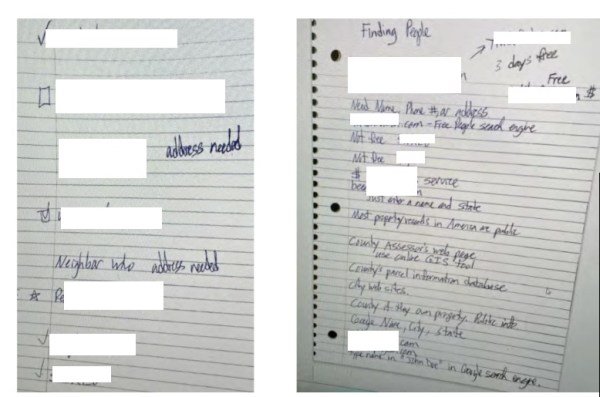 address needed
Neighbor who address needed
Finding People
3 days free
Free
$
Need Name, Phone #, or address
.com - Free People search engine
Not free
Not free
$ service
Just enter a name and state
Most property records in America are public
County Assessor's web page
use online GIS tool
County's parcel information database
city web sites.
County if they own property. Public info
Google Name, City, State
.com
Type name in "John Doe" in Google search engine.